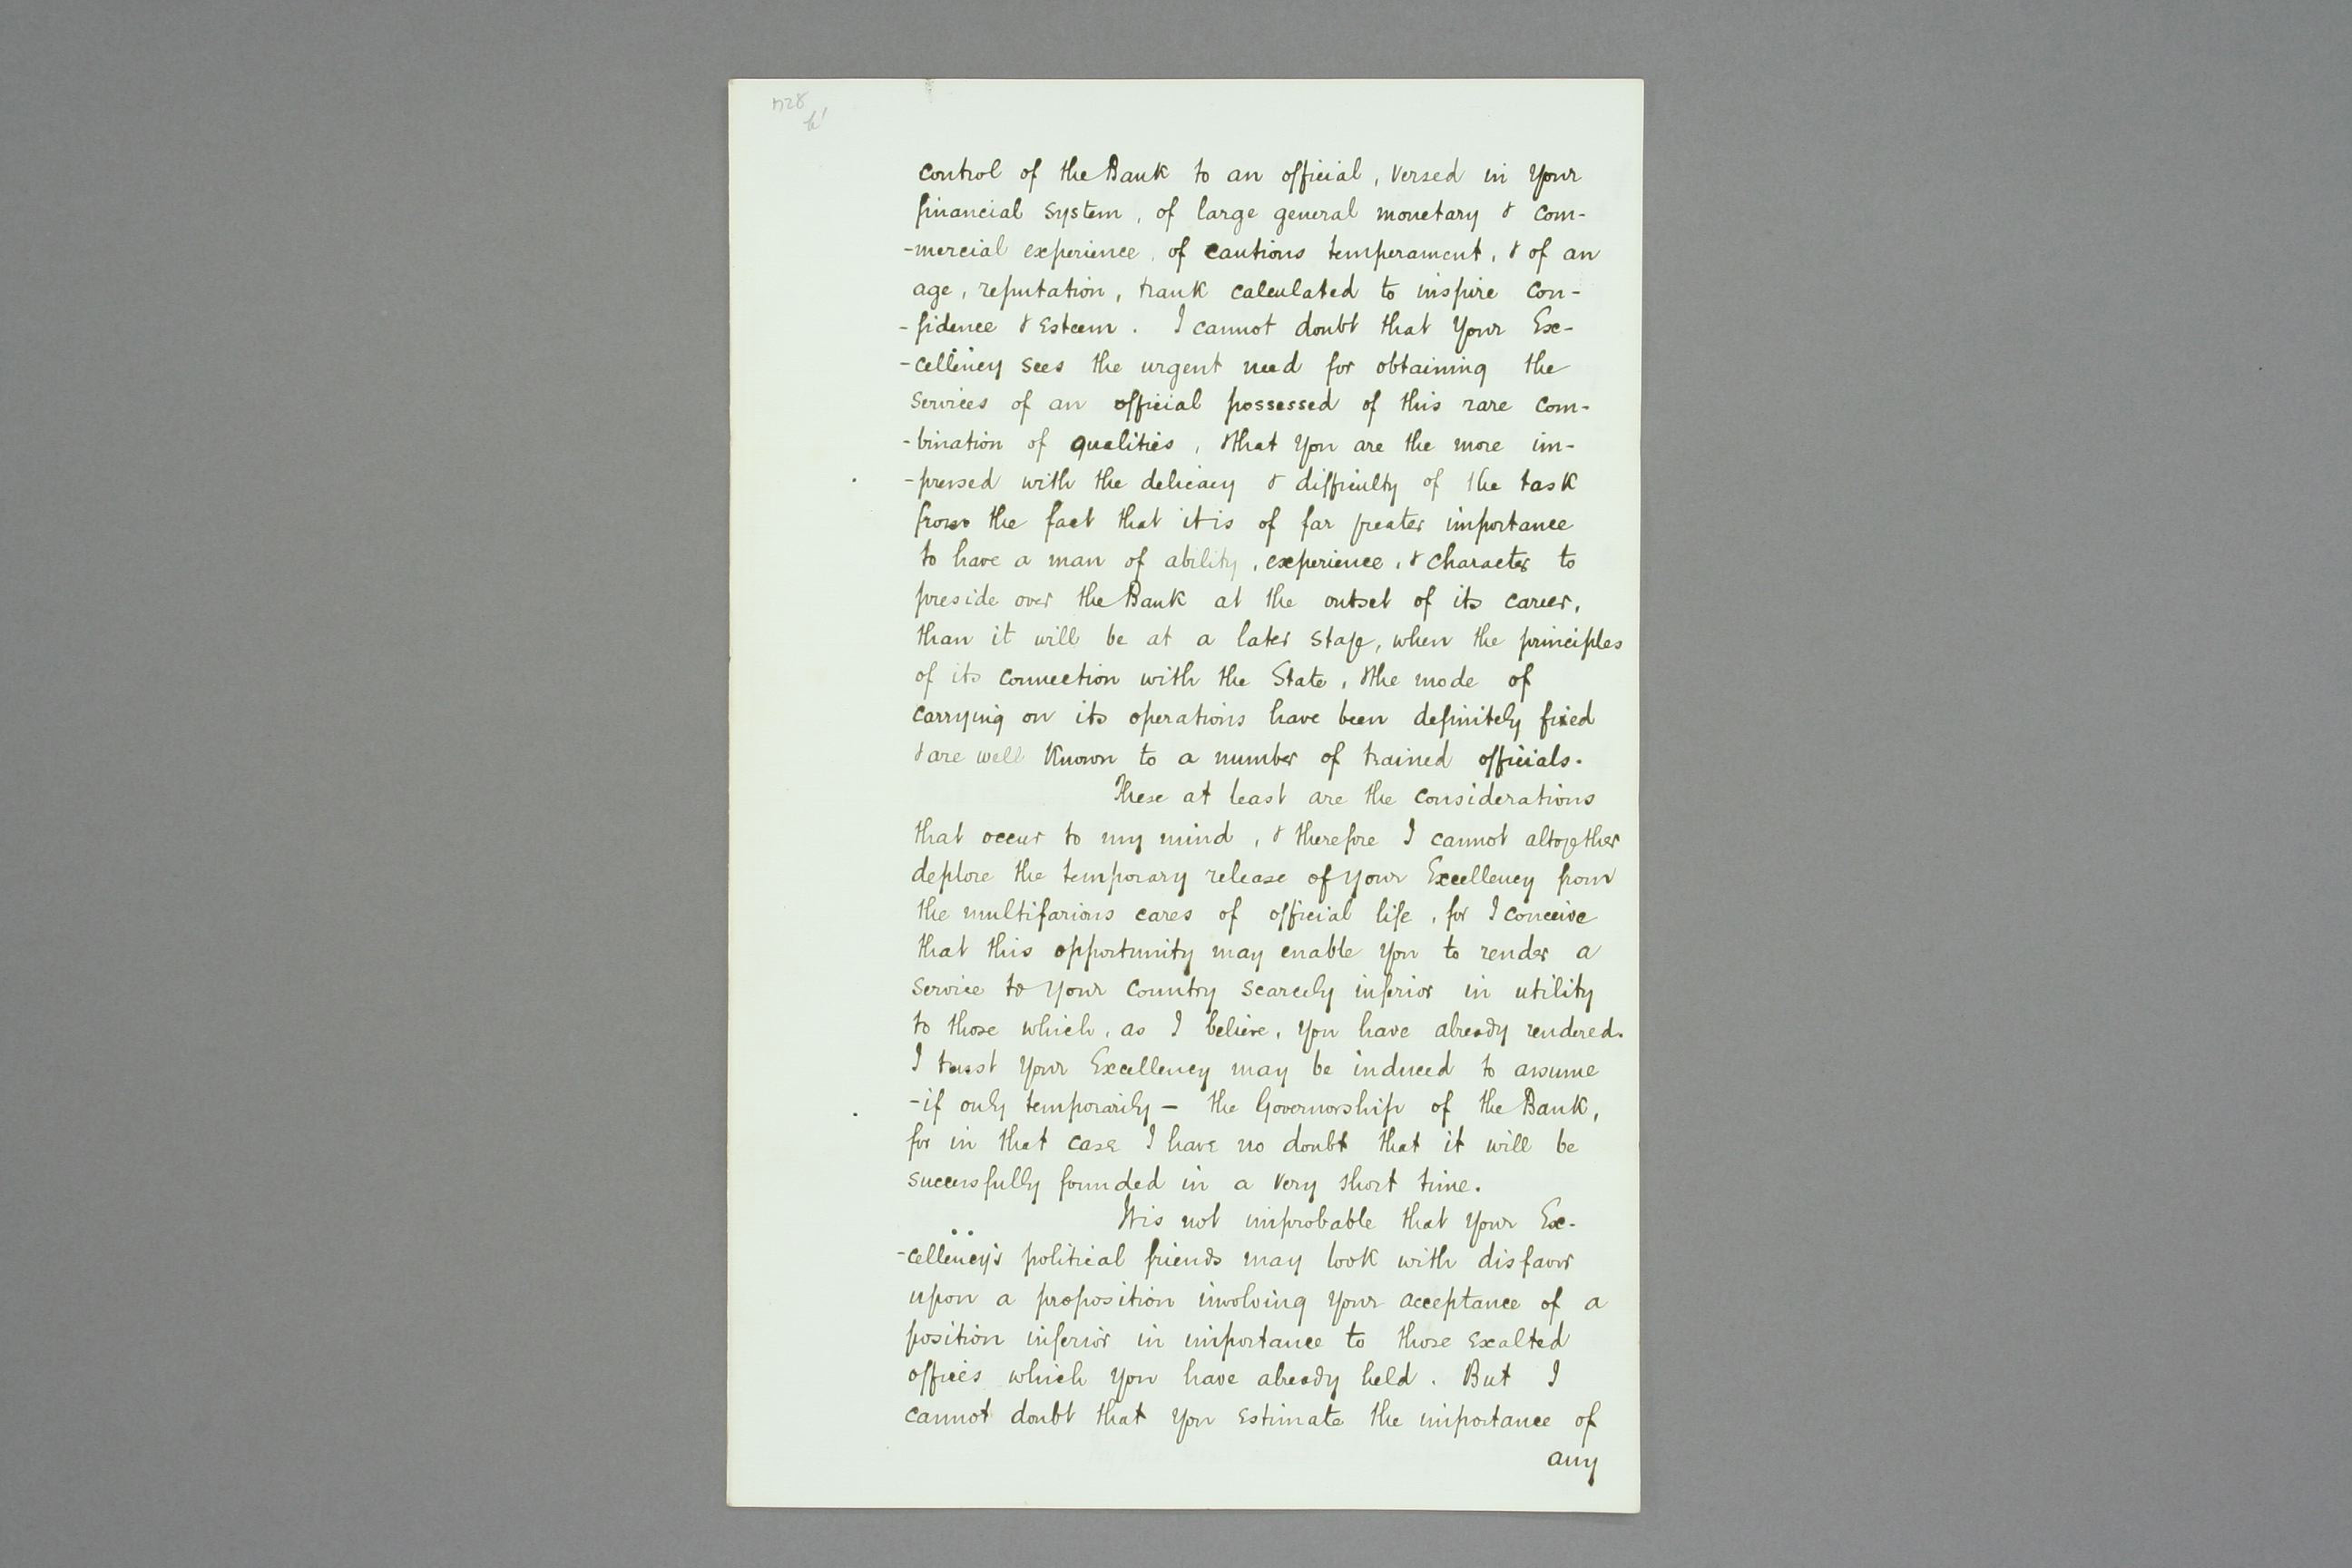 control of the Bank to an official, versed in your
financial system, of large general monetary & com-
-mercial experience, of cautious temperament, & of an
age, reputation, & rank calculated to inspire con-
-fidence & esteem. I cannot doubt that Your Ex-
-cellency sees the urgent need for obtaining the
services of an official possessed of this rare com-
-bination of qualities, & that you are the more im-
-pressed with the delicacy & difficulty of the task
from the fact that it is of far greater importance
to have a man of ability, experience, & character to
preside over the Bank at the outset of its career,
than it will be at a later stage, when the principles
of its connection with the State, & the mode of
carrying on its operations have been definitely fixed
& are well known to a number of trained officials.
These at least are the considerations
that occur to my mind, & therefore I cannot altogether
deplore the temporary release of Your Excellency from
the multifarious cares of official life, for I conceive
that this opportunity may enable you to render a
service to your country scarcely inferior in utility
to those which, as I believe, you have already rendered.
I trust Your Excellency may be induced to assume
-if only temporarily- the Governorship of the Bank,
for in that case I have no doubt that it will be
successfully founded in a very short time.
It is not improbable that Your Ex-
-cellency's political friends may look with disfavor
upon a proposition involving your acceptance of a
position inferior in importance to those exalted
offices which you have already held. But I
cannot doubt that you estimate the importance of
any